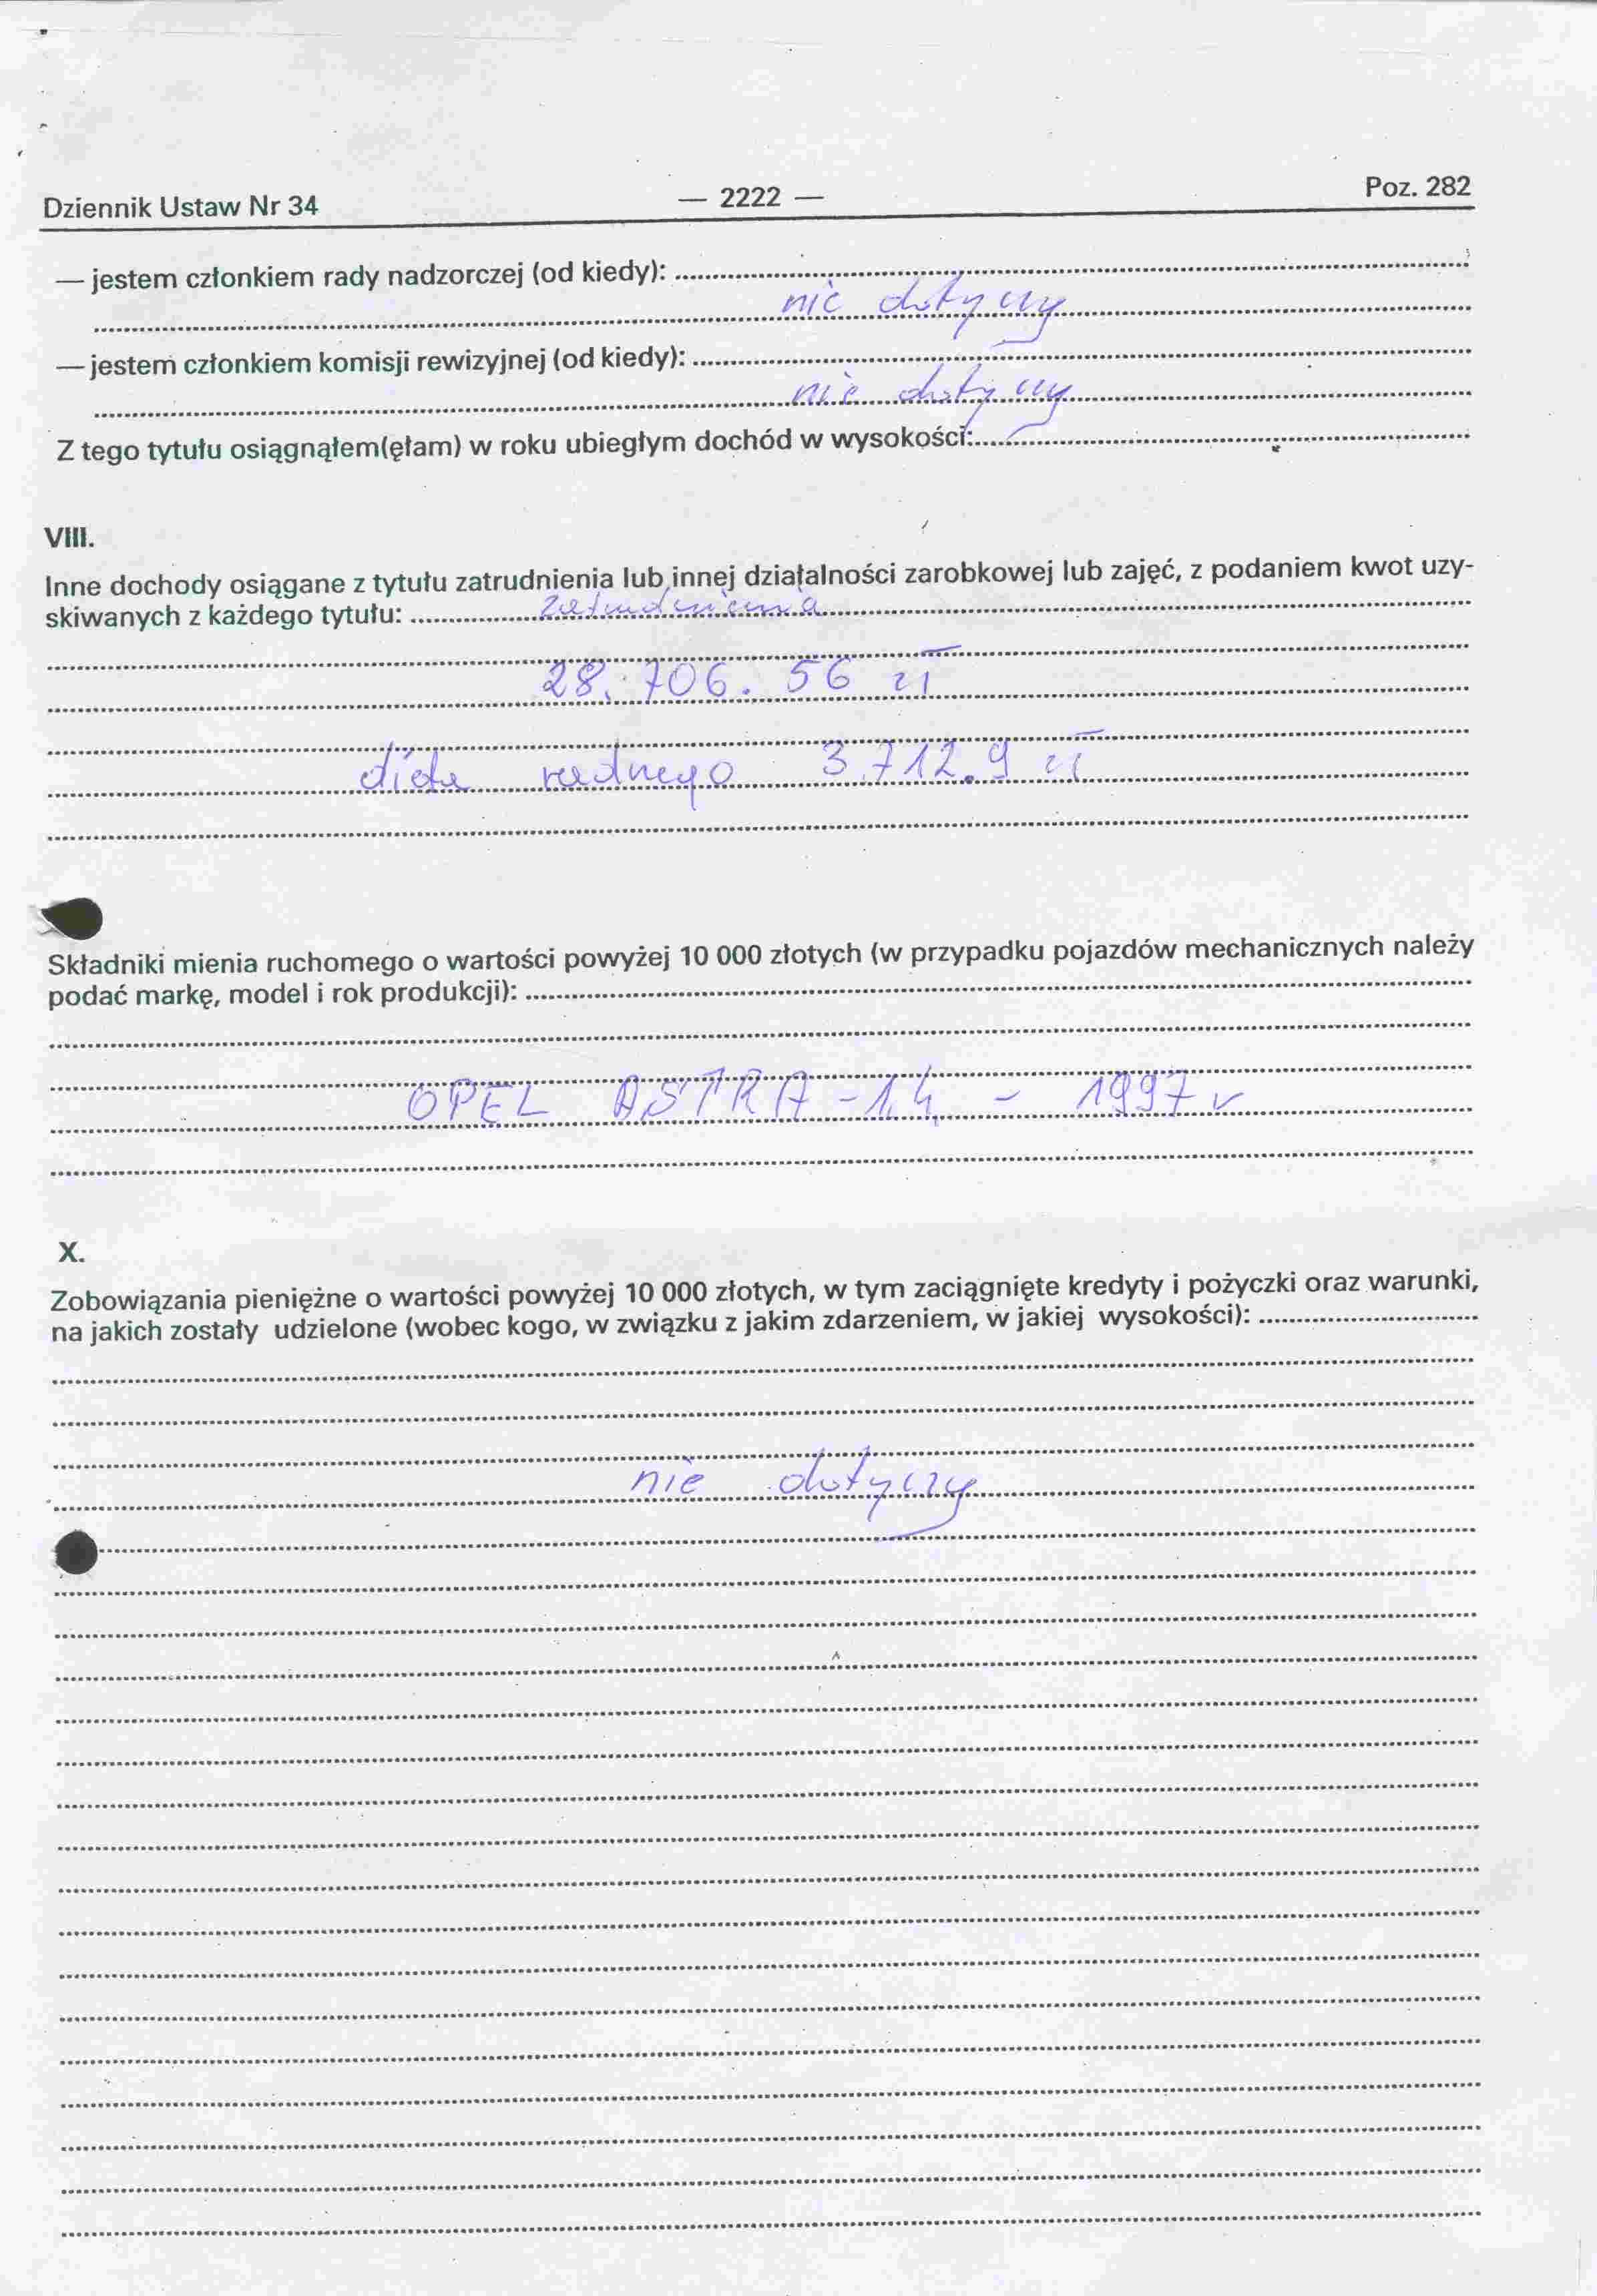 Dziennik Ustaw Nr 34 — 2222 — Poz. 282
— jestem członkiem rady nadzorczej (od kiedy):
nie dotyczy
— jestem członkiem komisji rewizyjnej (od kiedy):
nie dotyczy
Z tego tytułu osiągnąłem(ęłam) w roku ubiegłym dochód w wysokości:
VIII.
Inne dochody osiągane z tytułu zatrudnienia lub innej działalności zarobkowej lub zajęć, z podaniem kwot uzy-
skiwanych z każdego tytułu: zatrudnienia
28.706.56 zł
dieta radnego 3.712.9 zł
Składniki mienia ruchomego o wartości powyżej 10 000 złotych (w przypadku pojazdów mechanicznych należy
podać markę, model i rok produkcji):
OPEL ASTRA - 1,4 - 1997 r
X.
Zobowiązania pieniężne o wartości powyżej 10 000 złotych, w tym zaciągnięte kredyty i pożyczki oraz warunki,
na jakich zostały udzielone (wobec kogo, w związku z jakim zdarzeniem, w jakiej wysokości):
nie dotyczy